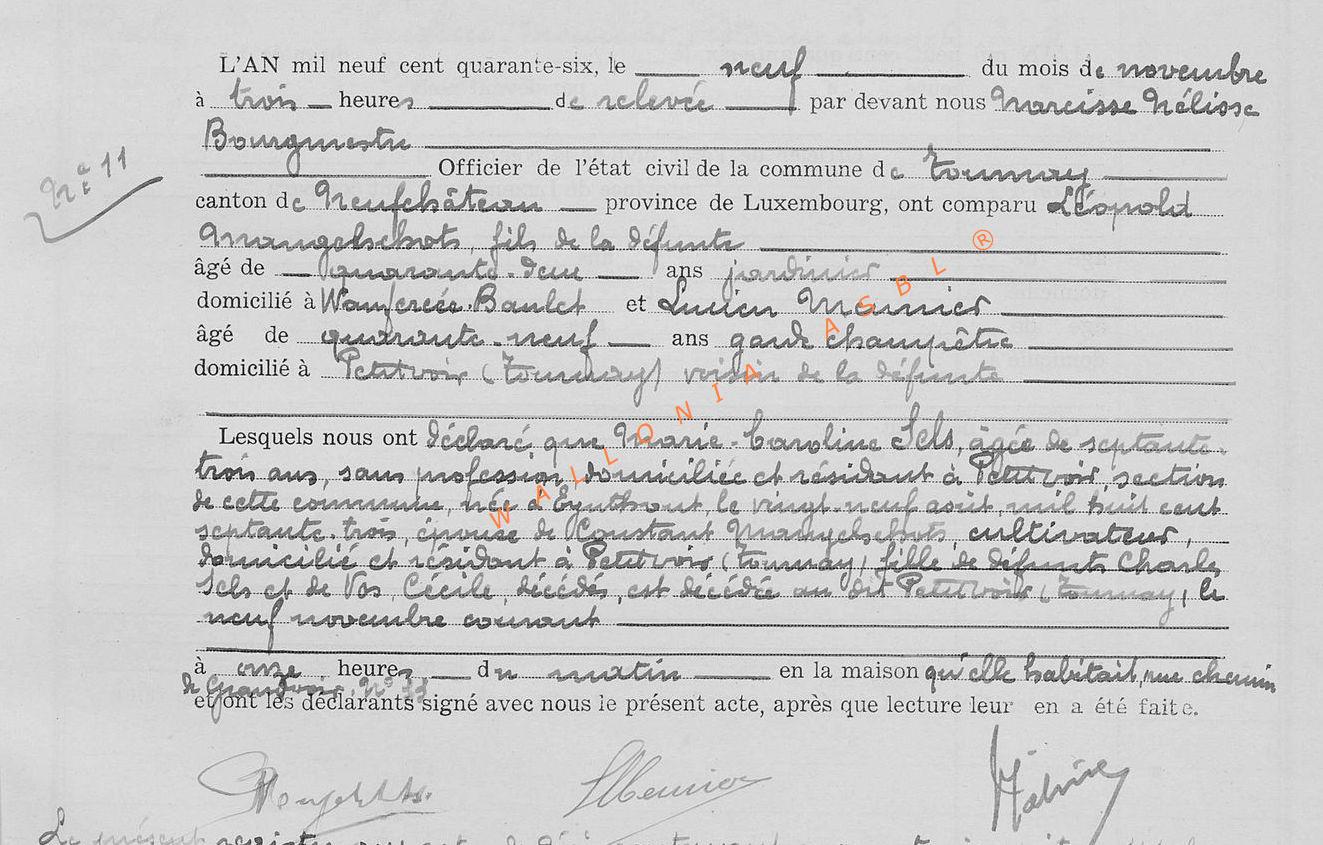 L'AN mil neuf cent quarante-six, le neuf du mois de novembre
à trois heures de relevée par devant nous Narcisse Nélisse
Bourgmestre
Officier de l'état civil de la commune de Tournay
Nº 11
canton de Neufchâteau province de Luxembourg, ont comparu Léopold
Mangelschots, fils de la défunte
âgé de quarante-deux ans jardinier
domicilié à Wanfercée-Baulet et Lucien Meunier
âgé de quarante-neuf ans garde champêtre
domicilié à Petitvoir (Tournay) voisin de la défunte
Lesquels nous ont déclaré que Marie-Caroline Sels, âgée de septante-
trois ans, sans profession, domiciliée et résidant à Petitvoir, section
de cette commune, née à Eynthout, le vingt-neuf août mil huit cent
septante-trois, épouse de Constant Mangelschots, cultivateur,
domicilié et résidant à Petitvoir (Tournay) fille de défunts Charles
Sels et de Vos Cécile, décédés, est décédée au dit Petitvoir (Tournay), le
neuf novembre courant
à onze heures du matin en la maison qu'elle habitait, rue chemin
de Grandvoir, Nº 33
et ont les déclarants signé avec nous le présent acte, après que lecture leur en a été faite.
WALLONIA ASBL ®
LMeunier
Le présent registre